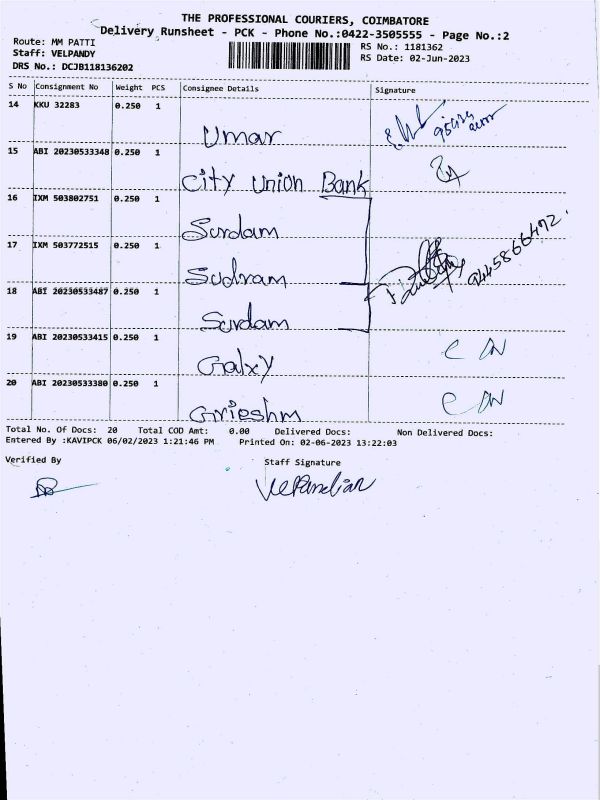 THE PROFESSIONAL COURIERS, COIMBATORE
Delivery Runsheet - PCK - Phone No.:0422-3505555 - Page No.:2
Route: MM PATTI
RS No.: 1181362
Staff: VELPANDY
RS Date: 02-Jun-2023
DRS No.: DCJB118136202
S No Consignment No Weight PCS Consignee Details Signature
14 KKU 32283 0.250 1
Umar
15 ABI 20230533348 0.250 1
City Union Bank
16 IXM 503802751 0.250 1
Surdam
17 IXM 503772515 0.250 1
Sudram
9445866492
18 ABI 20230533487 0.250 1
Surdam
19 ABI 20230533415 0.250 1
Galxy
20 ABI 20230533380 0.250 1
Grieshm
Total No. Of Docs: 20 Total COD Amt: 0.00 Delivered Docs: Non Delivered Docs:
Entered By :KAVIPCK 06/02/2023 1:21:46 PM Printed On: 02-06-2023 13:22:03
Verified By Staff Signature
VelPandian